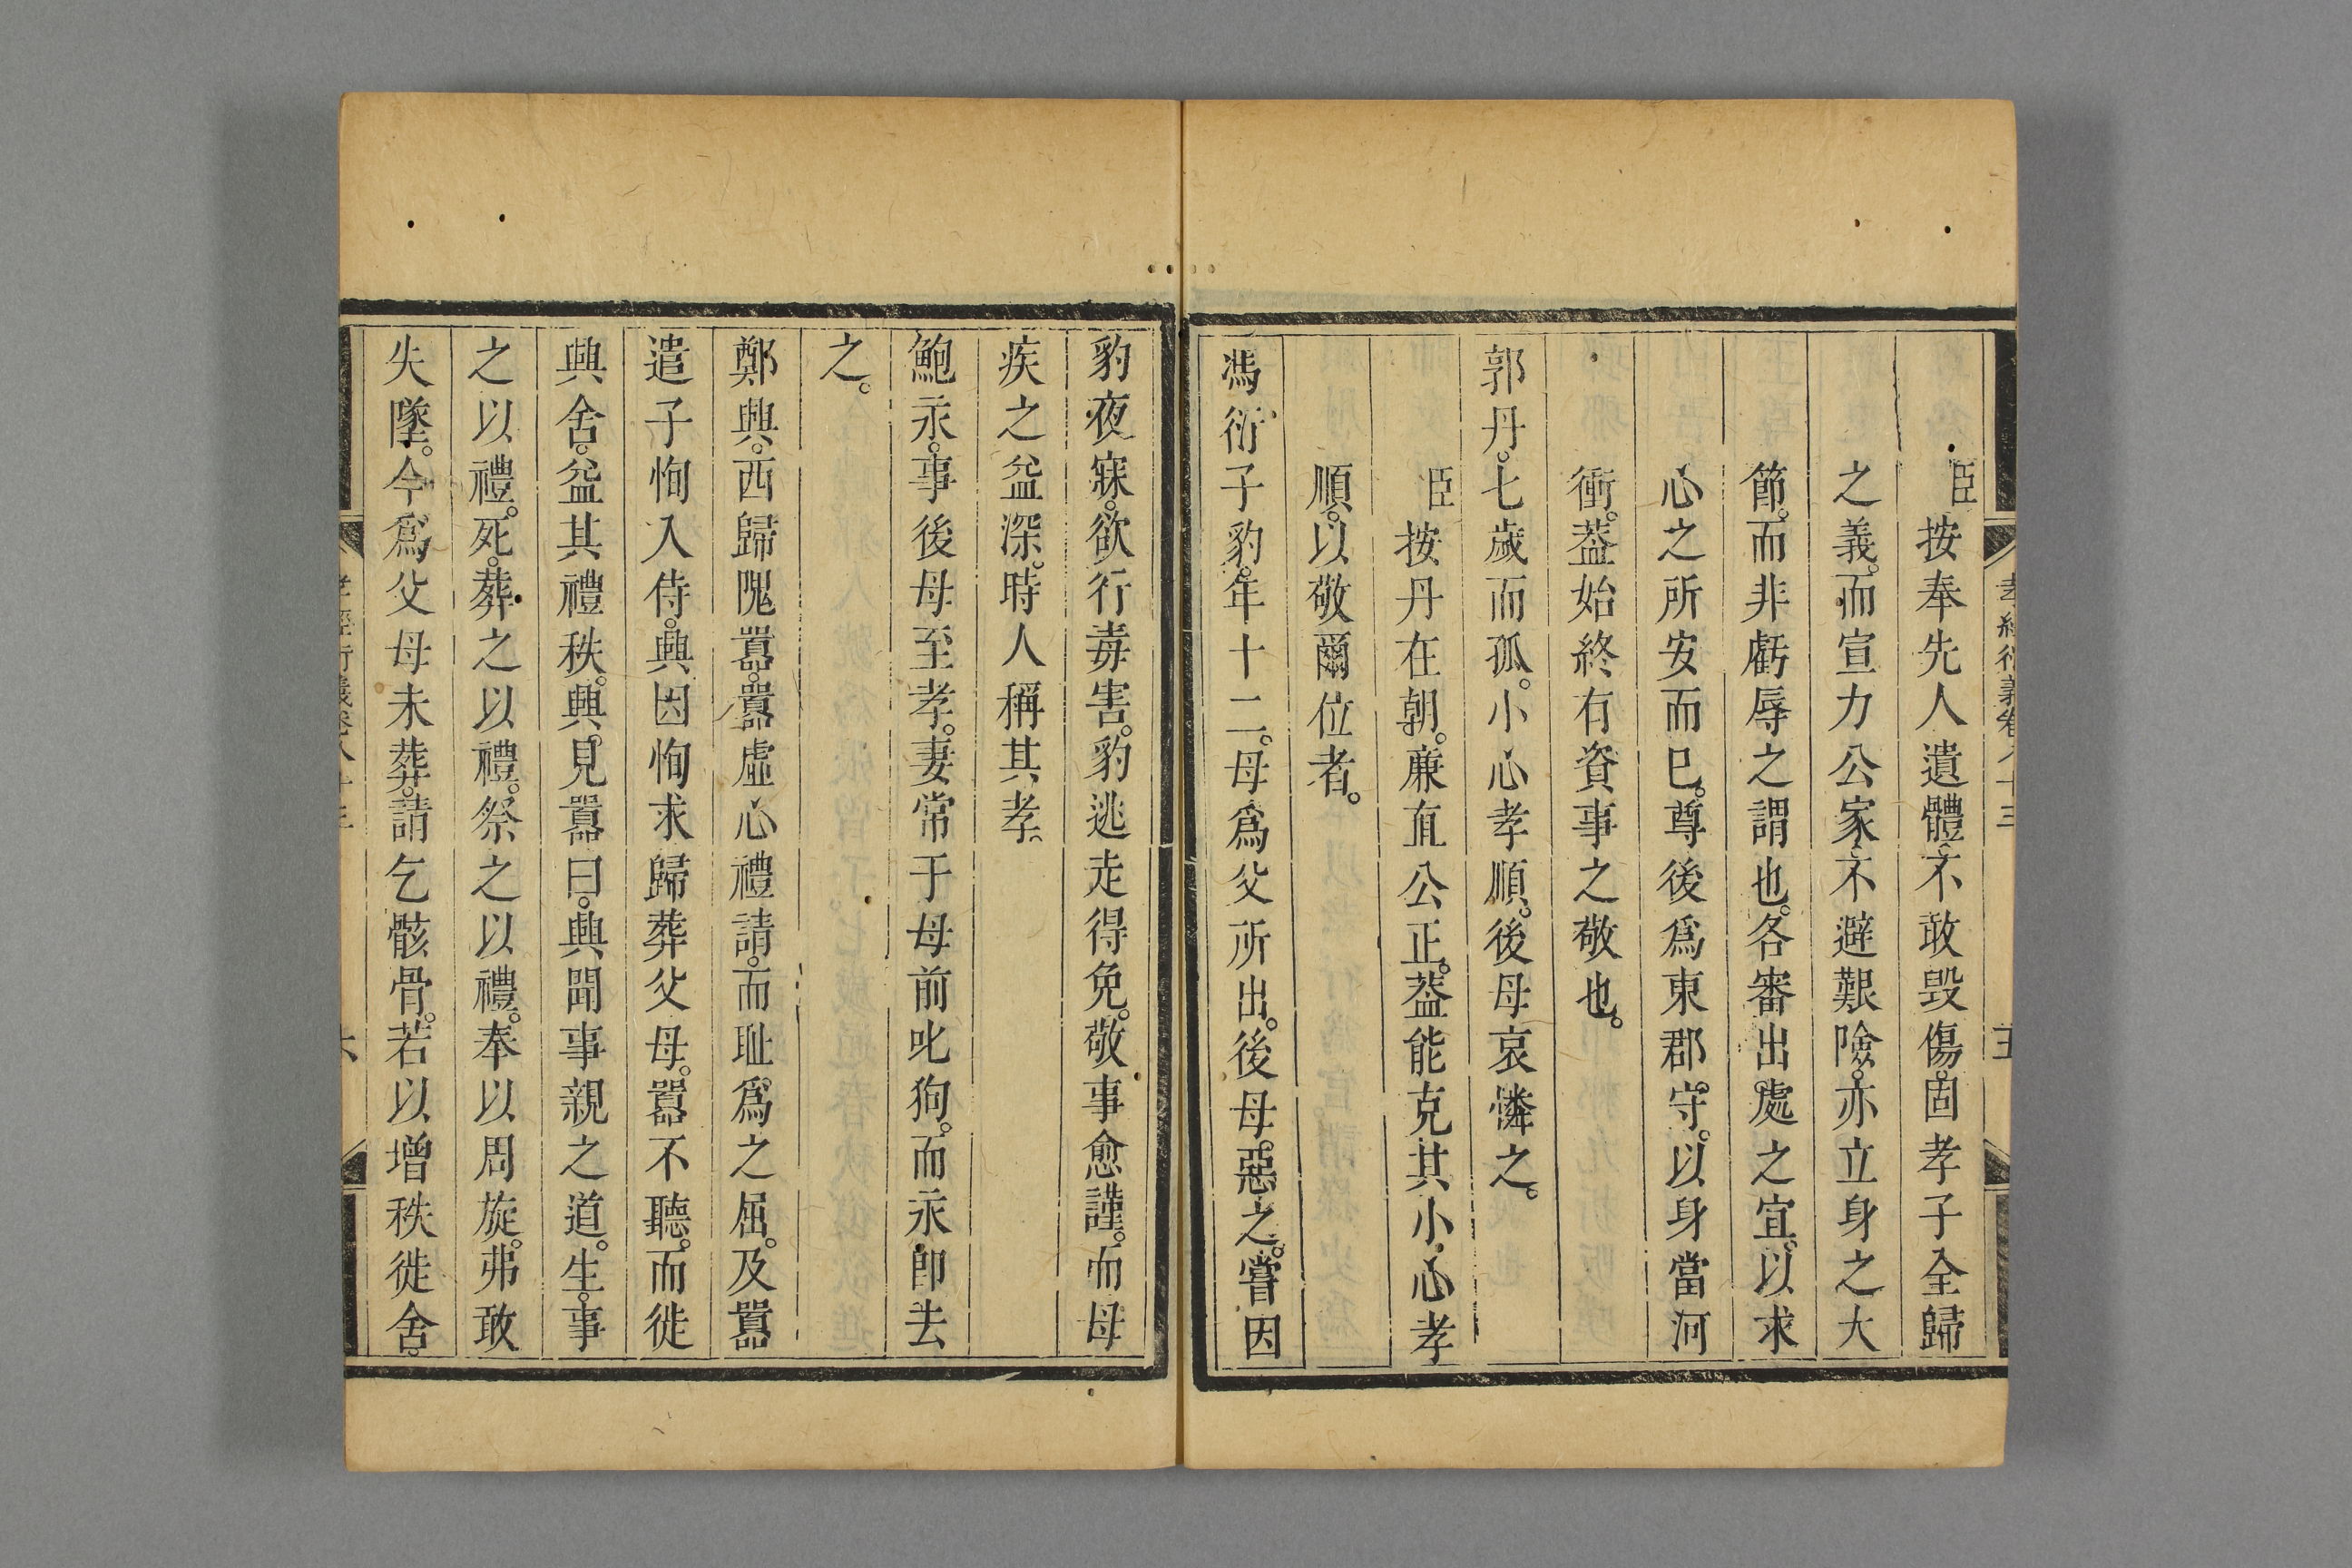 孝經衍義卷八十三
五
臣按奉先人遺體不敢毁傷固孝子全歸
之義而宣力公家不避艱險亦立身之大
節而非虧辱之謂也各審出處之宜以求
心之所安而已尊後爲東郡守以身當河
衝葢始終有資事之敬也
郭丹七歲而孤小心孝順後母哀憐之
臣按丹在朝廉直公正葢能克其小心孝
順以敬爾位者
馮衍子豹年十二母爲父所出後母惡之嘗因
豹夜寐欲行毒害豹逃走得免敬事愈謹而母
疾之益深時人稱其孝
鮑永事後母至孝妻常于母前叱狗而永卽去
之
鄭興西歸隗囂囂虛心禮請而耻爲之屈及囂
遣子恂入侍興因恂求歸葬父母囂不聽而徙
興舍益其禮秩興見囂曰興聞事親之道生事
之以禮死葬之以禮祭之以禮奉以周旋弗敢
失墜今爲父母未葬請乞骸骨若以增秩徙舍
孝經衍義卷八十三
六